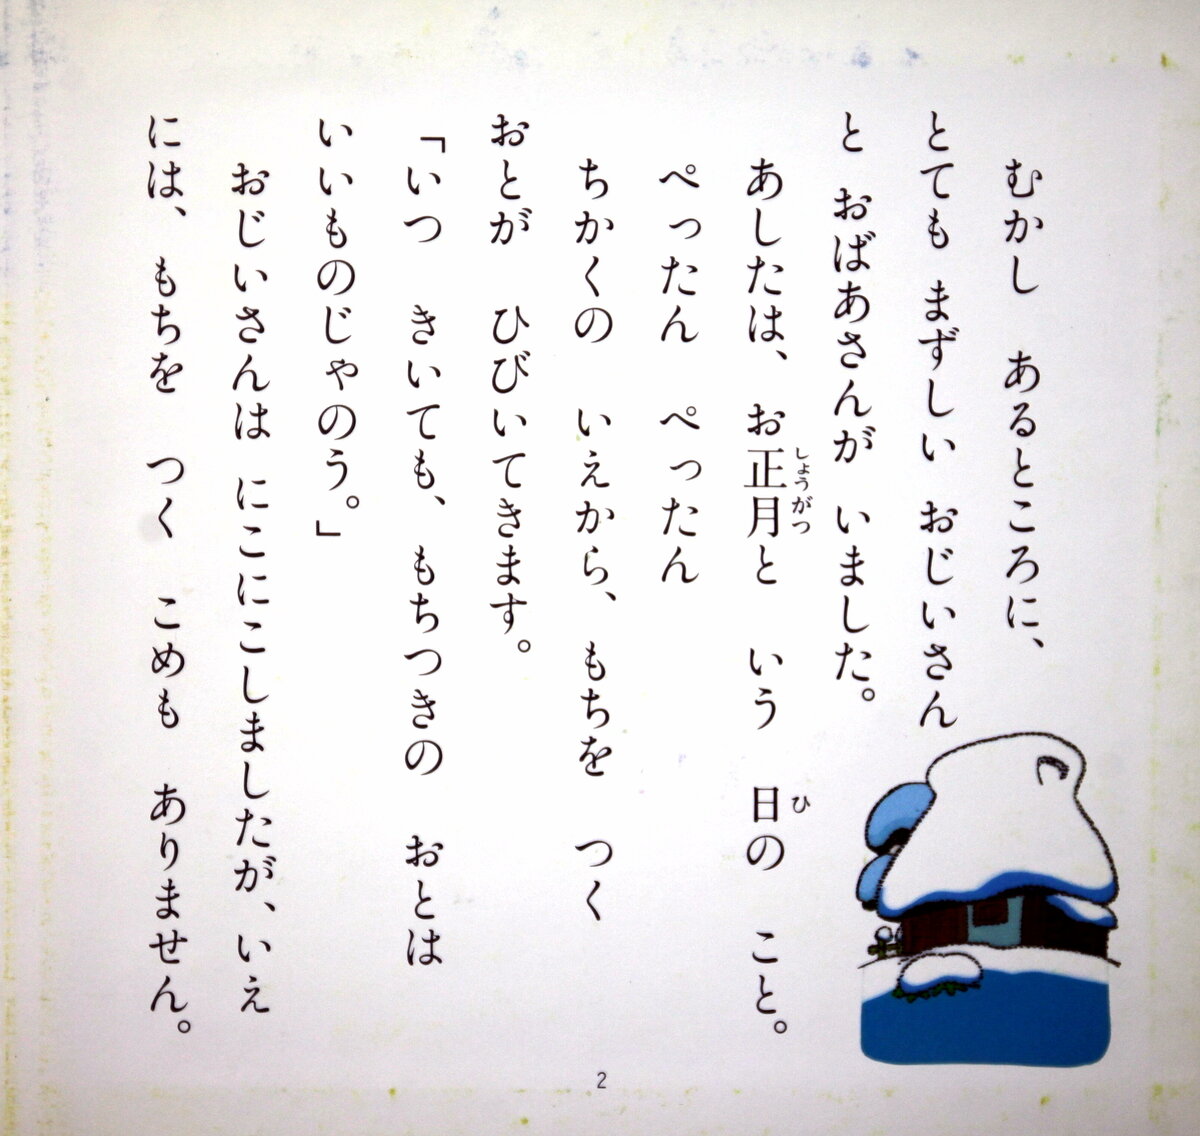 むかし　あるところに、
とても まずしい おじいさん
と おばあさんが いました。
あしたは、お正月と いう 日の こと。
しょうがつ
ひ
ぺったん ぺったん
ちかくの いえから、もちを つく
おとが ひびいてきます。
「いつ きいても、もちつきの おとは
いいものじゃのう。」
おじいさんは にこにこしましたが、いえ
には、もちを つく こめも ありません。
2